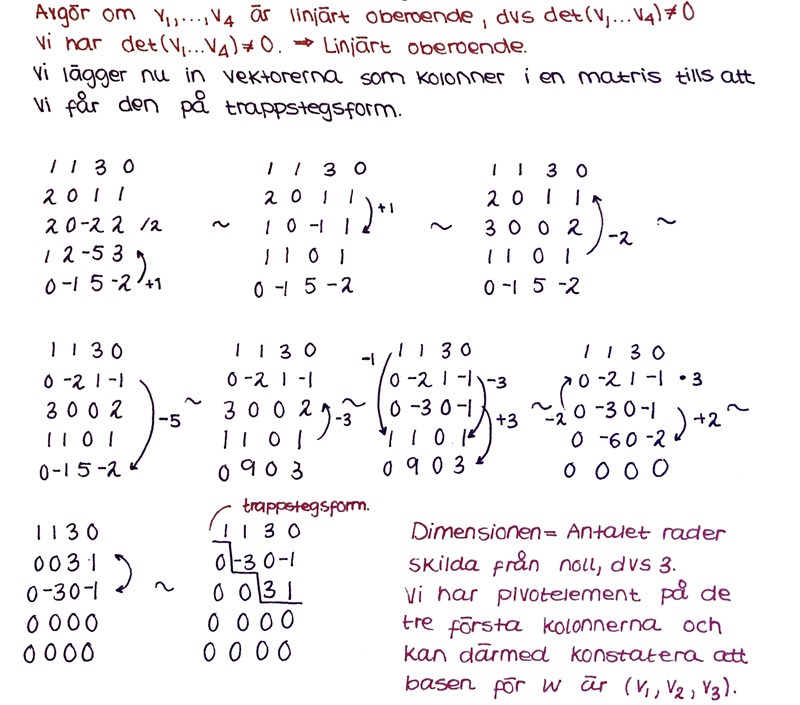 Avgör om v₁,...,v₄ är linjärt oberoende, dvs det(v₁...v₄)≠0
Vi har det(v₁...v₄)≠0. ⇒ Linjärt oberoende.
Vi lägger nu in vektorerna som kolonner i en matris tills att
vi får den på trappstegsform.
1 1 3 0
2 0 1 1
2 0 -2 2 /2
1 2 -5 3
0 -1 5 -2 +1
~
1 1 3 0
2 0 1 1
1 0 -1 1 +1
1 1 0 1
0 -1 5 -2
~
1 1 3 0
2 0 1 1
3 0 0 2 -2
1 1 0 1
0 -1 5 -2
~
1 1 3 0
0 -2 1 -1
3 0 0 2
1 1 0 1 -5
0 -1 5 -2
~
1 1 3 0
0 -2 1 -1
3 0 0 2
1 1 0 1 -3
0 9 0 3
~
-1 1 1 3 0
0 -2 1 -1 -3
0 -3 0 -1
1 1 0 1 +3
0 9 0 3
~
1 1 3 0
0 -2 1 -1 • 3
-2 0 -3 0 -1
0 -6 0 -2 +2
0 0 0 0
~
1 1 3 0
0 0 3 1
0 -3 0 -1
0 0 0 0
0 0 0 0
~
trappstegsform.
1 1 3 0
0 -3 0 -1
0 0 3 1
0 0 0 0
0 0 0 0
Dimensionen = Antalet rader
skilda från noll, dvs 3.
Vi har pivotelement på de
tre första kolonnerna och
kan därmed konstatera att
basen för W är (v₁, v₂, v₃).